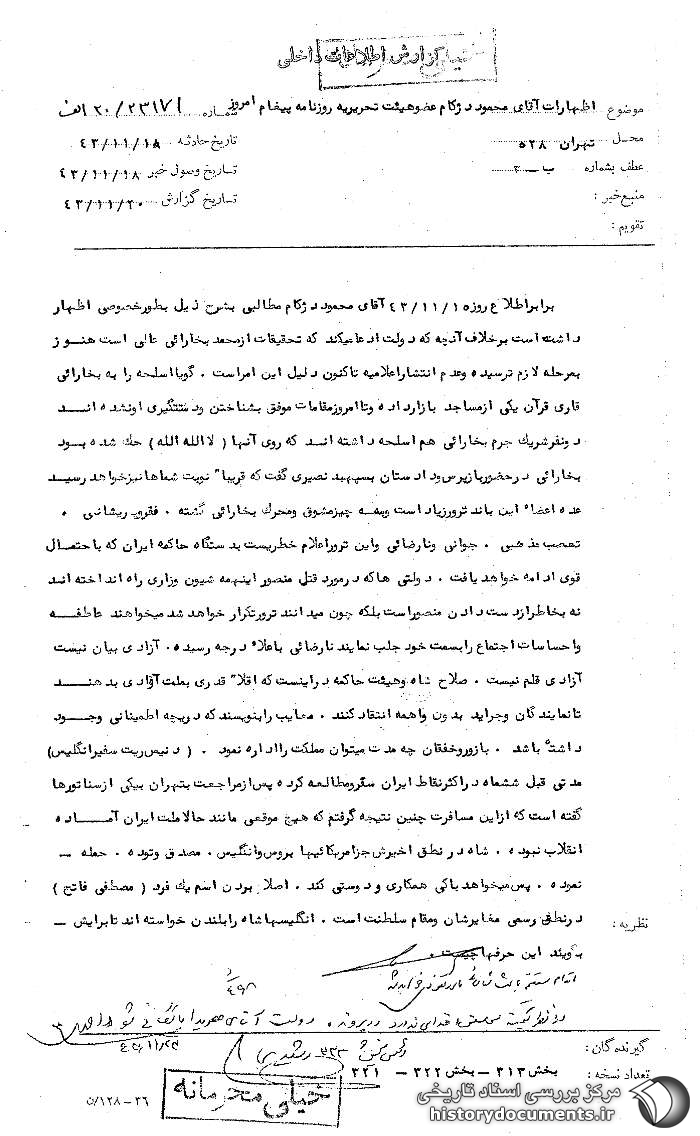 خیلی
گزارش اطلاعات داخلی
موضوع اظهارات آقای محمود دژکام عضو هیئت تحریریه روزنامه پیغام امروز شماره ۲۰/۲۳۱۷۱ الف
محل تهران ۵۲۸ تاریخ حادثه ۴۳/۱۱/۱۸
عطف بشماره تاریخ وصول خبر ۴۳/۱۱/۱۸
منبع خبر : تاریخ گزارش ۴۳/۱۱/۲۰
تقویم :
برابر اطلاع روزه ۴۳/۱۱/۱ آقای محمود دژکام مطالبی بشرح ذیل بطور خصوصی اظهار
داشته است برخلاف آنچه که دولت ادعا میکند که تحقیقات از محمد بخارائی عالی است هنوز
بمرحله لازم نرسیده وعدم انتشار اعلامیه تاکنون دلیل این امراست . گویا اسلحه را به بخارائی
قاری قرآن یکی از مساجد بازار داده و تا امروز مقامات موفق بشناختن ودستگیری اونشده اند
دونفر شریک جرم بخارائی هم اسلحه داشته اند که روی آنها ( لااله الله ) حک شده بود
بخارائی درحضور بازپرس و دادستان بسپهبد نصیری گفت که قریبا" نوبت شماها نیز خواهد رسید
عده اعضاء این باند ترور زیاد است وسه چیز مشوق ومحرک بخارائی گشته . فقر و پریشانی .
تعصب مذهبی . جوانی ونارضائی واین ترور اعلام خطریست بدستگاه حاکمه ایران که باحتمال
قوی ادامه خواهد یافت . دولتی ها که درمورد قتل منصور اینهمه شیون وزاری راه انداخته اند
نه بخاطر ازدست دادن منصور است بلکه چون میدانند ترور تکرار خواهد شد میخواهند عاطفه
واحساسات اجتماع را بسمت خود جلب نمایند نارضائی باعلاء درجه رسیده . آزادی بیان نیست
آزادی قلم نیست . صلاح شاه وهیئت حاکمه دراینست که اقلا" قدری بملت آزادی بدهند
تا نمایندگان وجراید بدون واهمه انتقاد کنند . معایب را بنویسند که دریچه اطمینانی وجود
داشته باشد . بازور وخفقان چه مدت میتوان مملکت را اداره نمود . ( دنیس ریت سفیر انگلیس)
مدتی قبل ششماه دراکثر نقاط ایران سفر ومطالعه کرده پس از مراجعت بتهران بیکی از سناتورها
گفته است که از این مسافرت چنین نتیجه گرفتم که هیچ موقعی مانند حالا ملت ایران آماده
انقلاب نبوده . شاه در نطق اخیرش جز امریکائیها بروس وانگلیس . مصدق وتوده . حمله –
نموده . پس میخواهد باکی همکاری و دوستی کند . اصلا بردن اسم یک فرد ( مصطفی فاتح )
درنطق رسمی مغایر شان ومقام سلطنت است . انگلیسها شاه را بلندن خواسته اند تا برایش –
بگویند این حرفها چیست .
نظریه :
گیرندگان :
تعداد نسخه : بخش ۳۱۳ – بخش ۳۲۲ – ۳۲۱
خیلی محرمانه
۵/۱۲۸-۲۶
مرکز بررسی اسناد تاریخی
historydocuments.ir